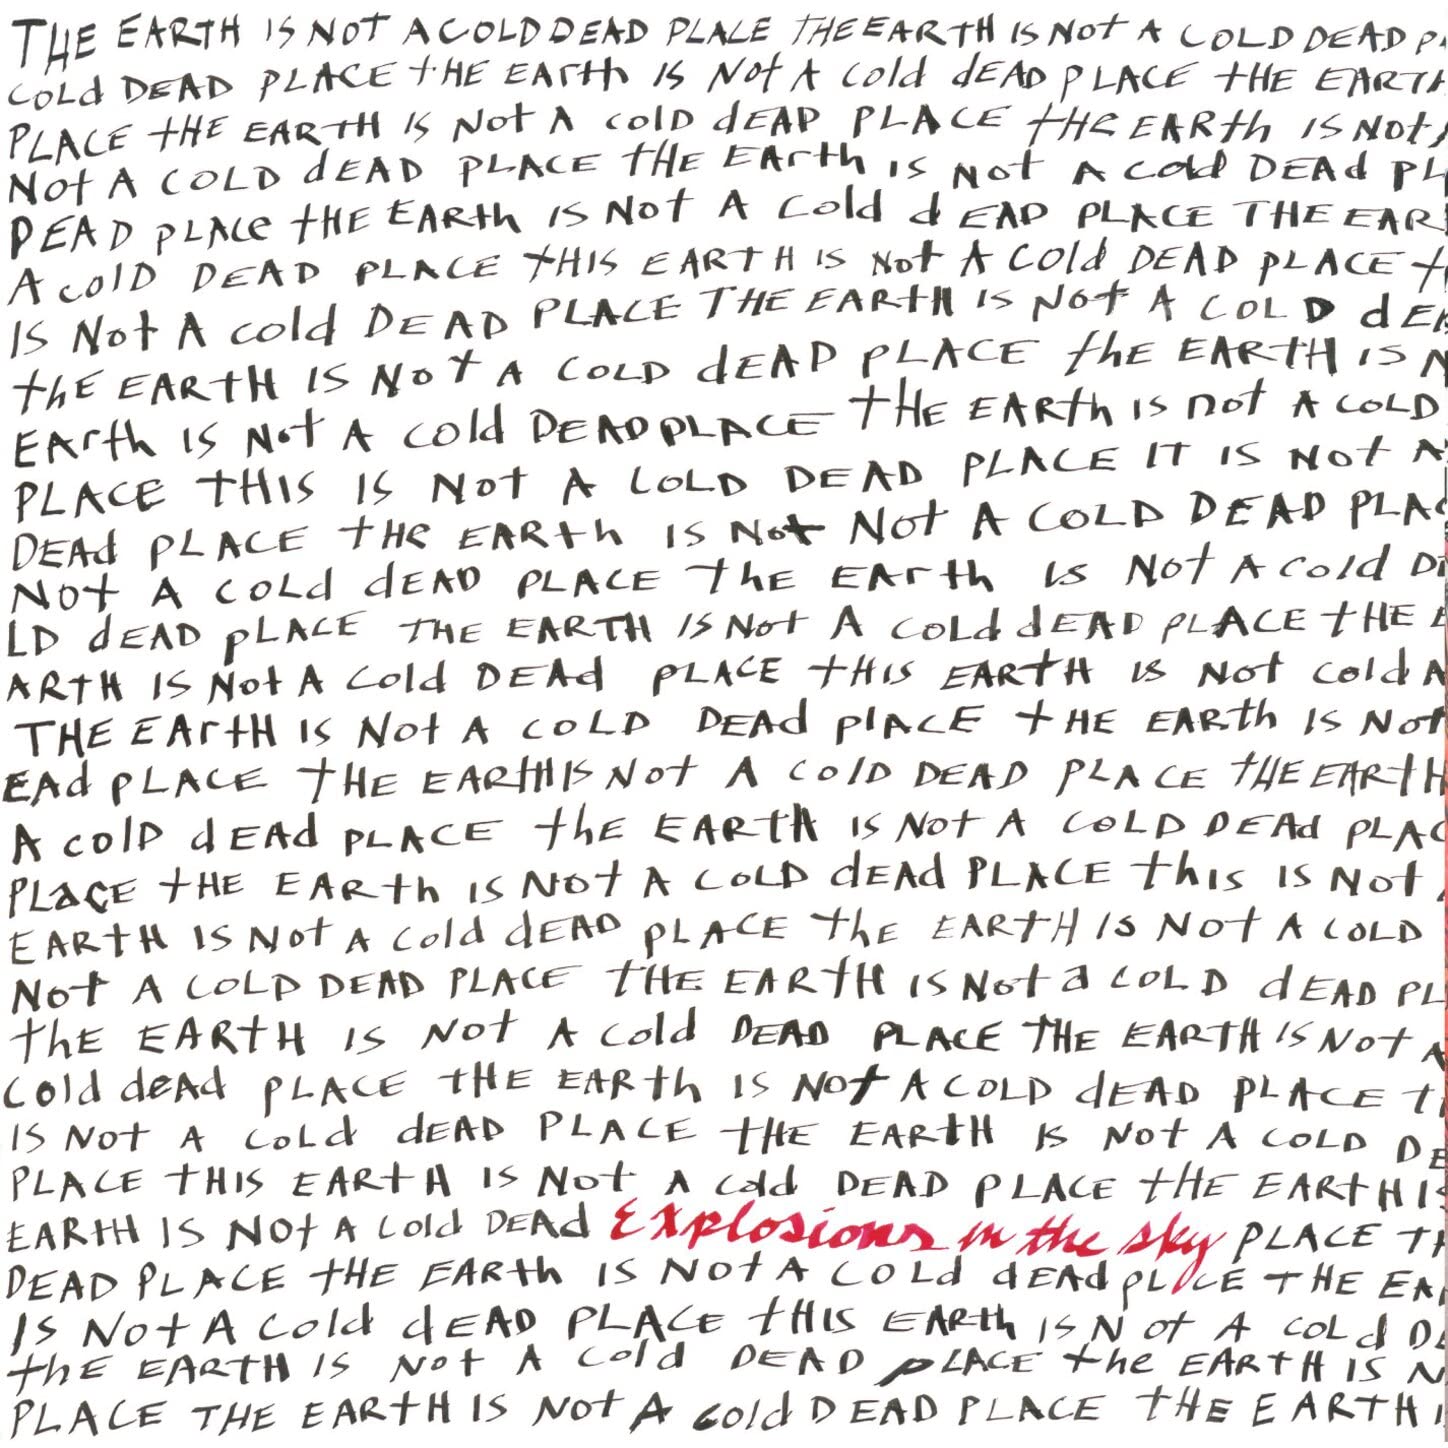 THE EARTH IS NOT A COLD DEAD PLACE THE EARTH IS NOT A COLD DEAD
COLD DEAD PLACE THE EARTH IS NOT A COLD DEAD PLACE THE EARTH
PLACE THE EARTH IS NOT A COLD DEAD PLACE THE EARTH IS NOT
NOT A COLD DEAD PLACE THE EARTH IS NOT A COLD DEAD PL
DEAD PLACE THE EARTH IS NOT A COLD DEAD PLACE THE EAR
A COLD DEAD PLACE THIS EARTH IS NOT A COLD DEAD PLACE
IS NOT A COLD DEAD PLACE THE EARTH IS NOT A COLD DE
THE EARTH IS NOT A COLD DEAD PLACE THE EARTH IS N
EARTH IS NOT A COLD DEAD PLACE THE EARTH IS NOT A COLD
PLACE THIS IS NOT A COLD DEAD PLACE IT IS NOT A
DEAD PLACE THE EARTH IS NOT NOT A COLD DEAD PLAC
NOT A COLD DEAD PLACE THE EARTH IS NOT A COLD D
LD DEAD PLACE THE EARTH IS NOT A COLD DEAD PLACE THE E
ARTH IS NOT A COLD DEAD PLACE THIS EARTH IS NOT COLD A
THE EARTH IS NOT A COLD DEAD PLACE THE EARTH IS NOT
EAD PLACE THE EARTH IS NOT A COLD DEAD PLACE THE EARTH
A COLD DEAD PLACE THE EARTH IS NOT A COLD DEAD PLAC
PLACE THE EARTH IS NOT A COLD DEAD PLACE THIS IS NOT
EARTH IS NOT A COLD DEAD PLACE THE EARTH IS NOT A COLD
NOT A COLD DEAD PLACE THE EARTH IS NOT a COLD DEAD PL
THE EARTH IS NOT A COLD DEAD PLACE THE EARTH IS NOT A
COLD DEAD PLACE THE EARTH IS NOT A COLD DEAD PLACE T
IS NOT A COLD DEAD PLACE THE EARTH IS NOT A COLD DE
PLACE THIS EARTH IS NOT A COLD DEAD PLACE THE EARTH IS
EARTH IS NOT A COLD DEAD Explosions in the sky PLACE TH
DEAD PLACE THE EARTH IS NOT A COLD DEAD PLACE THE EA
IS NOT A COLD DEAD PLACE THIS EARTH IS NOT A COLD D
THE EARTH IS NOT A COLD DEAD PLACE THE EARTH IS N
PLACE THE EARTH IS NOT A COLD DEAD PLACE THE EARTH